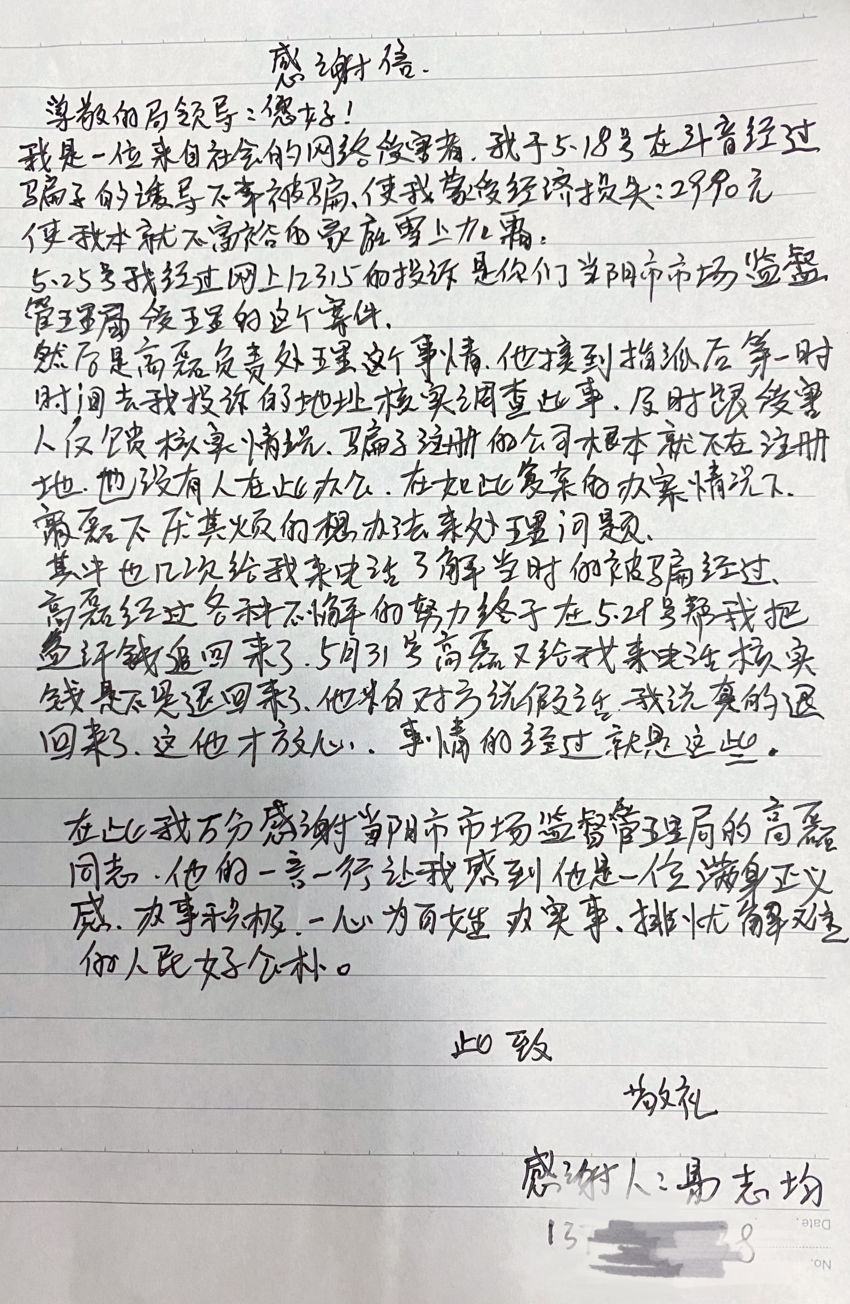 感谢信.
尊敬的局领导：您好！
我是一位来自社会的网络受害者.我于5.18号在斗音经过
骗子的诱导不幸被骗、使我蒙受经济损失：2990元
使我本就不富裕的家庭雪上加霜：
5.25号我经过网上12315的投诉是你们当阳市市场监督
管理局受理的这个案件.
然后是高磊负责处理这个事情.他接到指派后第一时
时间去我投诉的地址核实调查此事.及时跟受害
人反馈核实情况.骗子注册的公司根本就不在注册
地.也没有人在此办公.在如此复杂的办案情况下.
高磊不厌其烦的想办法来处理问题.
其中也几次给我来电话了解当时的被骗经过.
高磊经过各种不懈的努力终于在5.29号帮我把
血汗钱追回来了.5月31号高磊又给我来电话核实
钱是不是退回来了.他怕对方说假话.我说真的退
回来了.这他才放心.事情的经过就是这些。
在此我万分感谢当阳市市场监督管理局的高磊
同志.他的一言一行让我感到他是一位满身正义
感.办事积极.一心为百姓办实事、排忧解难
的人民好公朴。
此致
敬礼
感谢人：易志均
13 38
Date.
No.